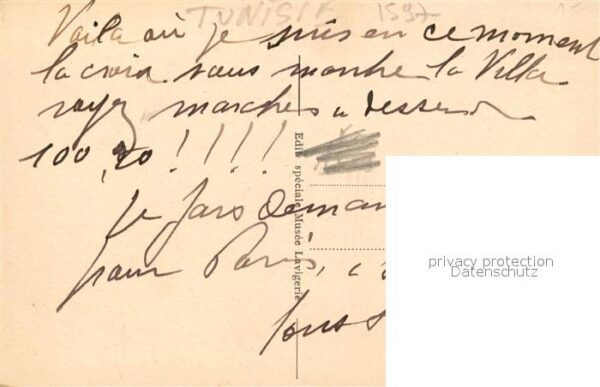 TUNISIE 1597
Voila où je suis en ce moment
la croix vous montre la Villa
voyez marches a dessendre
100,20 !!!!!
Je pars deman
pour Paris,
Edit. spéciale Musée Lavigerie
privacy protection
Datenschutz